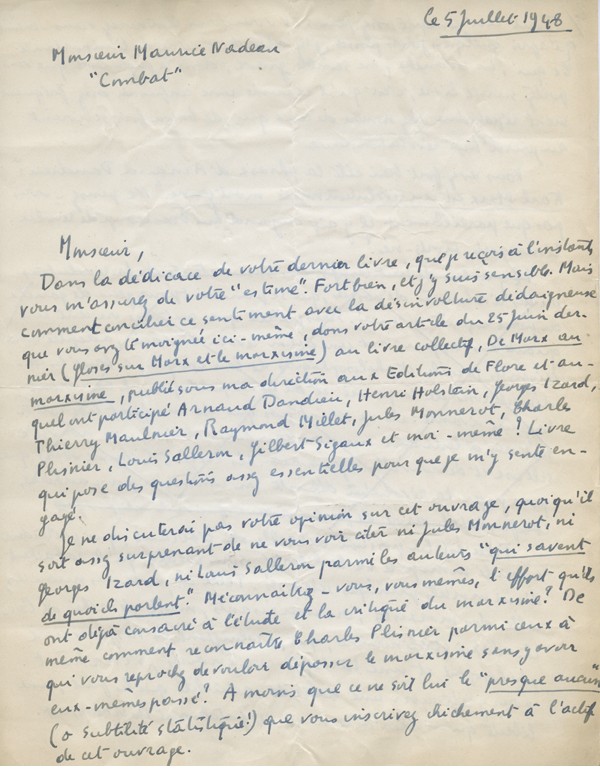 le 5 Juillet 1948
Monsieur Maurice Nadeau
"Combat"
Monsieur,
Dans la dédicace de votre dernier livre, que je reçois à l'instant
vous m'assurez de votre "estime". Fort bien, et j'y suis sensible. Mais
comment concilier ce sentiment avec la désinvolture dédaigneuse
que vous avez témoignée ici-même, dans votre article du 25 Juin der-
nier (gloses sur Marx et le marxisme) au livre collectif, De Marx au
marxisme, publié sous ma direction aux Editions de Flore et au-
quel ont participé Arnaud Dandieu, Henri Holstein, Georges Izard,
Thierry Maulnier, Raymond Millet, Jules Monnerot, Charles
Plisnier, Louis Salleron, Gilbert Sigaux et moi-même ? Livre
qui pose des questions assez essentielles pour que je m'y sente en-
gagé.
Je ne discuterai pas votre opinion sur cet ouvrage, quoiqu'il
soit assez surprenant de ne vous voir citer ni Jules Monnerot, ni
Georges Izard, ni Louis Salleron parmi les auteurs "qui savent
de quoi ils parlent." Méconnaîtriez-vous, vous-mêmes, l'effort qu'ils
ont déjà consacré à l'étude et la critique du marxisme ? De
même comment reconnaître Charles Plisnier parmi ceux à
qui vous reprochez de vouloir dépasser le marxisme sans y avoir
eux-mêmes passé ? A moins que ce ne soit lui le "presque aucun"
(o subtilité statistique !) que vous inscrivez chichement à l'actif
de cet ouvrage.